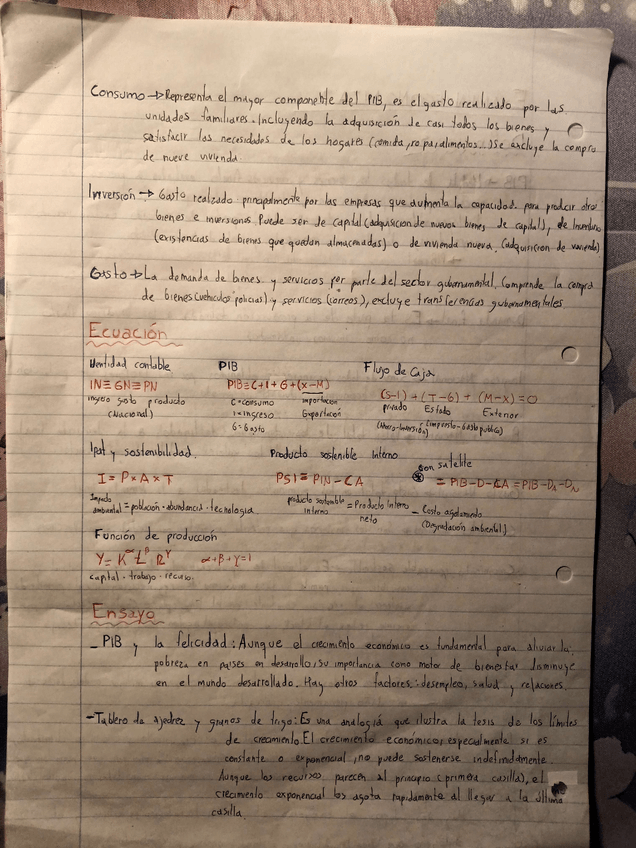 Consumo → Representa el mayor componente del PIB, es el gasto realizado por las
unidades familiares. Incluyendo la adquisición de casi todos los bienes y
satisfacir las necesidades de los hogares (comida, ropa, alimentos...) Se excluye la compra
de nueve vivienda.
Inversión → Gasto realizado principalmente por las empresas que aumenta la capacidad para producir otros
bienes e inversiones. Puede ser de capital (adquisicion de nuevos bienes de capital), de inventario
(existencias de bienes que quedan almacenadas) o de vivienda nueva. (adquisicion de vivienda)
Gasto → La demanda de bienes y servicios por parte del sector gubernamental. Comprende la compra
de bienes (vehículos policias) y servicios (correos), excluye transferencias gubernamentales.
Ecuación
Identidad contable PIB Flujo de Caja
IN ≡ GN ≡ PN PIB ≡ C + I + G + (X-M) (S-I) + (T-G) + (M-X) = 0
ingreso gasto producto C = consumo importacion privado Estado Exterior
(Nacional) I = ingreso Exportación (Ahorro-inversión) (impuesto-Gasto público)
G = Gasto
Ipat y sostenibilidad. Producto sostenible Interno con satelite
I = P × A × T PSI ≡ PIN - CA = PIB - D - CA = PIB - Da - Dn
Impacto
ambiental = población · abundancia · tecnología producto sostenible interno = Producto Interno neto - Costo agotamiento
(Degradación ambiental)
Función de producción
Y = K^α L^β R^γ α + β + γ = 1
capital · trabajo · recurso.
Ensayo
- PIB y la felicidad: Aunque el crecimiento económico es fundamental para aliviar la
pobreza en paises en desarrollo, su importancia como motor de bienestar disminuye
en el mundo desarrollado. Hay otros factores: desempleo, salud y relaciones.
- Tablero de ajedrez y granos de trigo: Es una analogía que ilustra la tesis de los límites
de crecimiento. El crecimiento económico, especialmente si es
constante o exponencial, no puede sostenerse indefinidamente.
Aunque los recursos parecen al principio (primera casilla), el
crecimiento exponencial los agota rapidamente al llegar a la última
casilla.